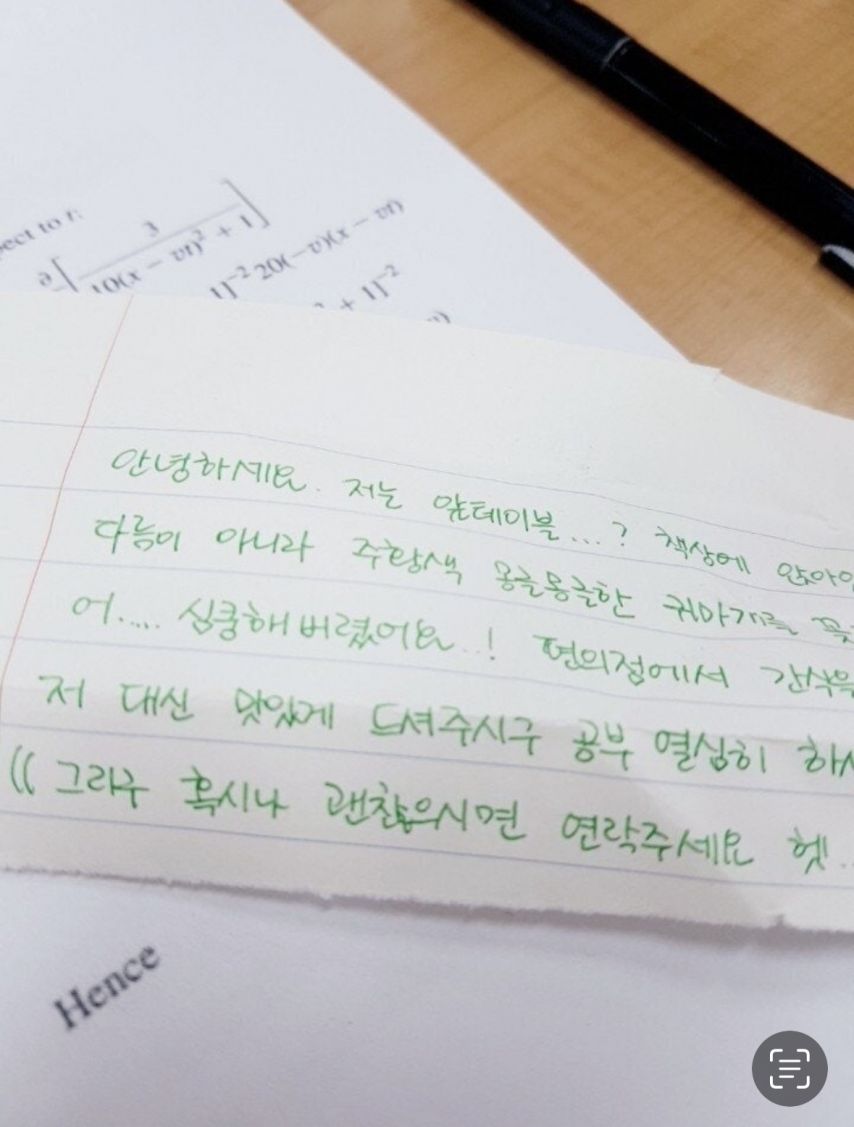 pect to t:
∂[3 / 10(x − vt)² + 1]
1]⁻² 20(−v)(x − vt)
+ 1]⁻²
안녕하세요. 저는 앞테이블...? 책상에 앉아있
다름이 아니라 주황색 몽글몽글한 귀마개를 꽂
어..... 심쿵해버렸어요..! 편의점에서 간식을
저 대신 맛있게 드셔주시구 공부 열심히 하시
(( 그라구 혹시나 괜찮으시면 연락주세요 헷..
Hence